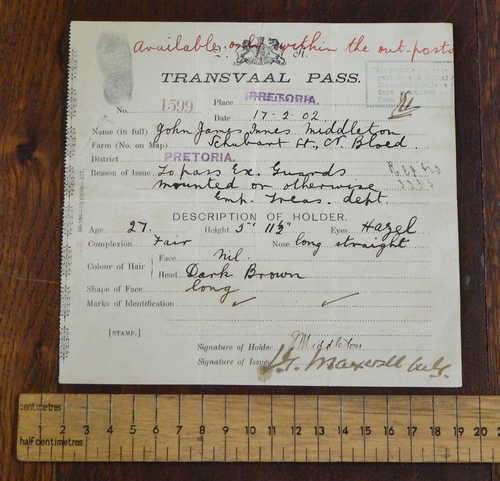 Available only within the out posts
TRANSVAAL PASS.
No. 1599 Place PRETORIA.
Date 17-2-02
Name (in full) John James Innes Middleton
Farm (No. on Map) Schubart St., Cr Bloed.
District PRETORIA.
Reason of Issue, To pass Ex. Guards
mounted or otherwise
Emp. Treas. dept.
DESCRIPTION OF HOLDER.
Age 27. Height, 5" 11½" Eyes, Hazel
Complexion Fair Nose long straight
Colour of Hair Face Nil.
Head, Dark Brown
Shape of Face long
Marks of Identification
[STAMP.]
Signature of Holder Middleton
Signature of Issuer Maxwell
centimetres
1 2 3 4 5 6 7 8 9 10 11 12 13 14 15 16 17 18 19 20
half centimetres